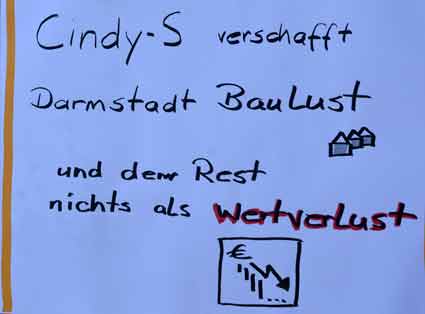 Cindy-S verschafft
Darmstadt BauLust
und dem Rest
nichts als Wertverlust
€
...